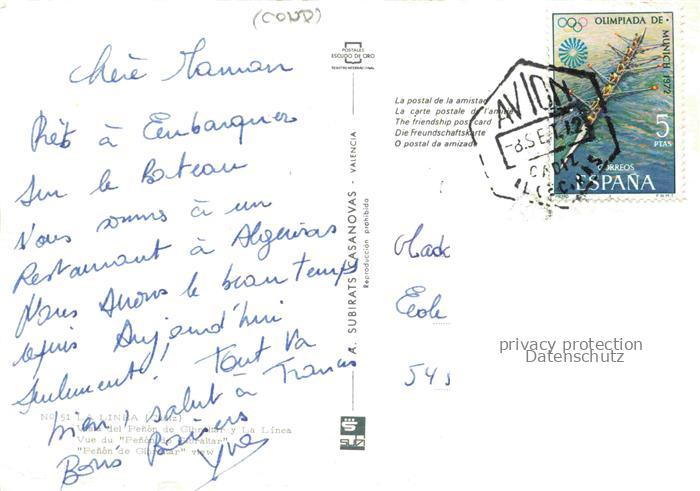 (COND)
Chère Maman
Prêts à Embarquer
Sur le Bateau
Nous sommes à un
Restaurant à Algeciras
Nous Avons le beau temps
depuis Aujourd'hui
seulement. Tout Va
bien! salut à Francis
Bons Baisers
Yves
POSTALES
ESCUDO DE ORO
REGISTRO INTERNACIONAL
A. SUBIRATS CASANOVAS - VALENCIA
Reproducción prohibida
No 51 LA LINEA (Cádiz)
Vista del Peñón de Gibraltar y La Línea
Vue du "Peñón de Gibraltar"
"Peñón de Gibraltar" view
La postal de la amistad
La carte postale de l'amitié
The friendship post card
Die Freundschaftskarte
O postal da amizade
OLIMPIADA DE
MUNICH 1972
5
PTAS
CORREOS
ESPAÑA
AVION
-8.SE.72
CADIZ
ALGECIRAS
Mada
École
54
privacy protection
Datenschutz